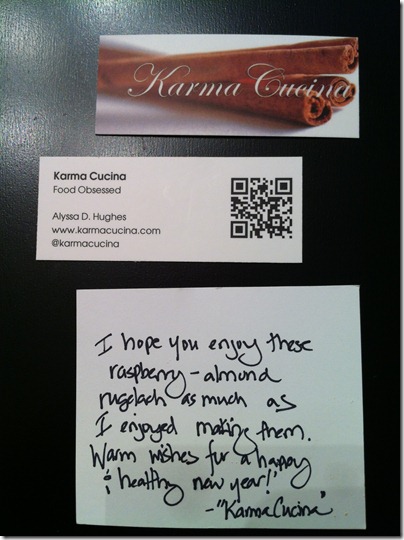 Karma Cucina
Karma Cucina
Food Obsessed
Alyssa D. Hughes
www.karmacucina.com
@karmacucina
I hope you enjoy these
raspberry-almond
rugelach as much as
I enjoyed making them.
Warm wishes for a happy
& healthy new year!
-"KarmaCucina"